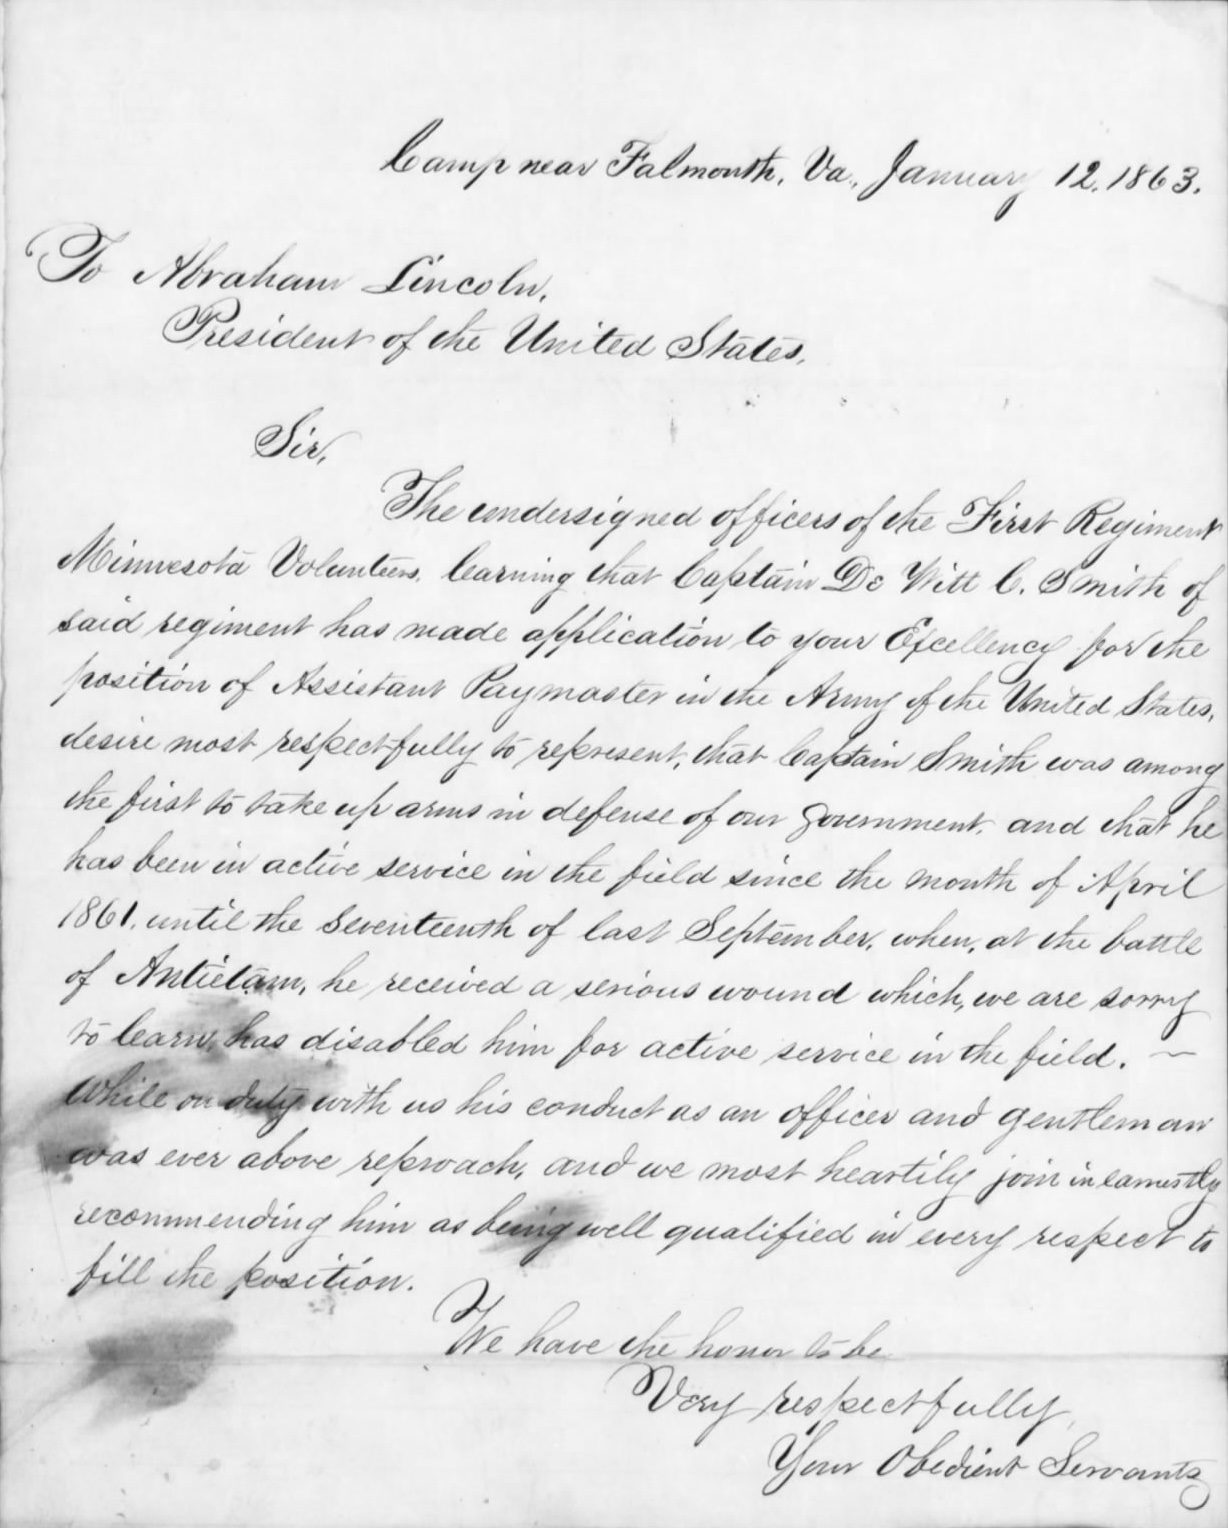 Camp near Falmouth, Va., January 12. 1863.
To Abraham Lincoln,
President of the United States,
Sir,
The undersigned officers of the First Regiment
Minnesota Volunteers, learning that Captain De Witt C. Smith of
said regiment has made application to your Excellency for the
position of Assistant Paymaster in the Army of the United States,
desire most respectfully to represent, that Captain Smith was among
the first to take up arms in defense of our government, and that he
has been in active service in the field since the month of April
1861, until the seventeenth of last September, when, at the battle
of Antietam, he received a serious wound which, we are sorry
to learn, has disabled him for active service in the field. —
While on duty with us his conduct as an officer and gentleman
was ever above reproach, and we most heartily join in earnestly
recommending him as being well qualified in every respect to
fill the position.
We have the honor to be
Very respectfully,
Your Obedient Servants